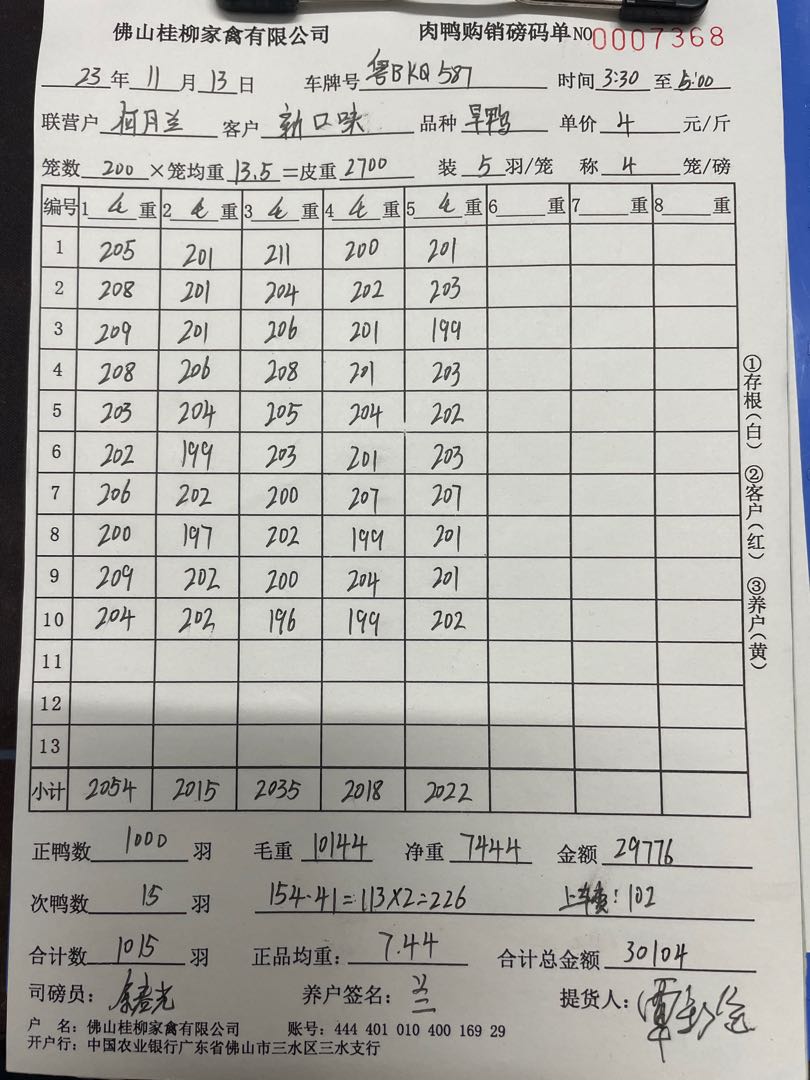 佛山桂柳家禽有限公司 肉鸭购销磅码单 NO 0007368
23年11月13日 车牌号 粤BKQ587 时间 3:30 至 5:00
联营户 何月兰 客户 新口味 品种 旱鸭 单价 4 元/斤
笼数 200 ×笼均重 13.5 =皮重 2700 装 5 羽/笼 称 4 笼/磅
编号 1 毛 重 2 毛 重 3 毛 重 4 毛 重 5 毛 重 6 重 7 重 8 重
1 205 201 211 200 201
2 208 201 204 202 203
3 209 201 206 201 199
4 208 206 208 201 203
5 203 204 205 204 202
6 202 199 203 201 203
7 206 202 200 207 207
8 200 197 202 199 201
9 209 202 200 204 201
10 204 202 196 199 202
11
12
13
小计 2054 2015 2035 2018 2022
①存根(白) ②客户(红) ③养户(黄)
正鸭数 1000 羽 毛重 10144 净重 7444 金额 29776
次鸭数 15 羽 154-41=113×2=226 上车费:102
合计数 1015 羽 正品均重: 7.44 合计总金额 30104
司磅员: 养户签名: 兰 提货人:
户 名: 佛山桂柳家禽有限公司 账号: 444 401 010 400 169 29
开户行: 中国农业银行广东省佛山市三水区三水支行